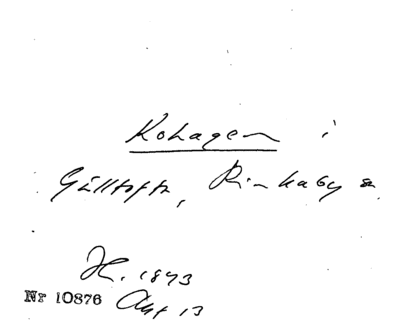 Kohagen i
Gälltofta, Rinkaby sn
H. 1843
Nr 10876 Akt 13